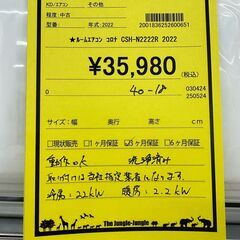 KD/エアコン その他
程度:中古 年式:2022
型型: 2001836252600651
★ルームエアコン コロナ CSH-N2222R 2022
¥35,980 (税込)
40-18 030424
250524
サイズ:幅 奥行 高さ cm
□現状販売 □1ヶ月保証 □3ヶ月保証 ☑6ヶ月保証
動作OK 洗浄済み
取り付けは当社指定業者になります。
冷房:2.2kW 暖房:2.2kW
The Jungle-Jungle